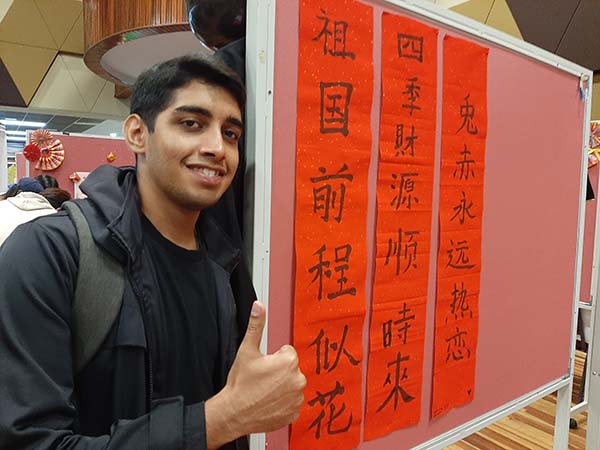 祖国前程似花
四季財源順時來
兔赤永远热恋